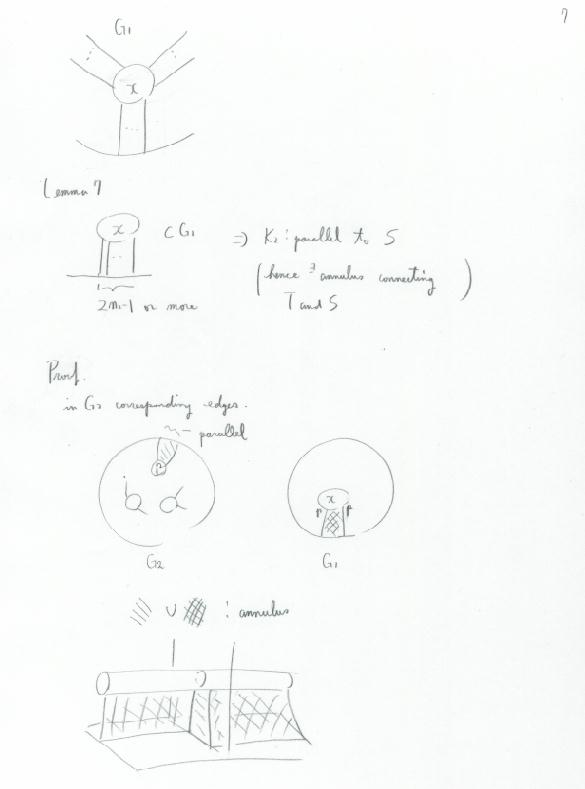 7
G1
x
Lemma 7
x ⊂ G1 ⇒ K2 : parallel to S
(hence ∃ annulus connecting
T and S)
2n1-1 or more
Proof.
in G2 corresponding edges.
parallel
p
x
p p
G2
G1
∪ : annulus